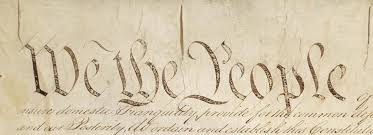 We the People
insure domestic Tranquility, provide for the common defen
and our Posterity, do ordain and establish this Constitut